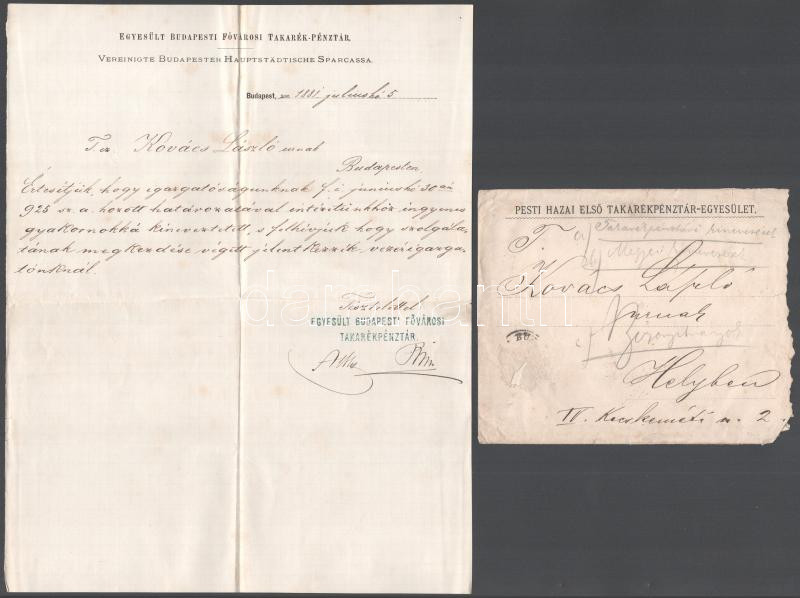 EGYESÜLT BUDAPESTI FŐVÁROSI TAKARÉK-PÉNZTÁR.
VEREINIGTE BUDAPESTER HAUPTSTÄDTISCHE SPARCASSA.
Budapest, 1881 julius hó 5
T. cz. Kovács László urnak
Budapesten
Értesitjük, hogy igazgatóságunknak f. é. junius hó 30 án
925 sz. a. hozott határozatával intézetünkhöz ingyenes
gyakornokká kineveztetett, s felhivjuk hogy szolgála-
tának megkezdése végett jelentkezzék vezérigazga-
tónknál.
Tisztelettel
EGYESÜLT BUDAPESTI FŐVÁROSI
TAKARÉKPÉNZTÁR.
PESTI HAZAI ELSŐ TAKARÉKPÉNZTÁR-EGYESÜLET.
a/ Takarékpénztári kinevezés
b/
T. cz.
Kovács László
urnak
c/ Bizonyitványok
BU
Helyben
IV. Kecskeméti u. 2.
darabanth